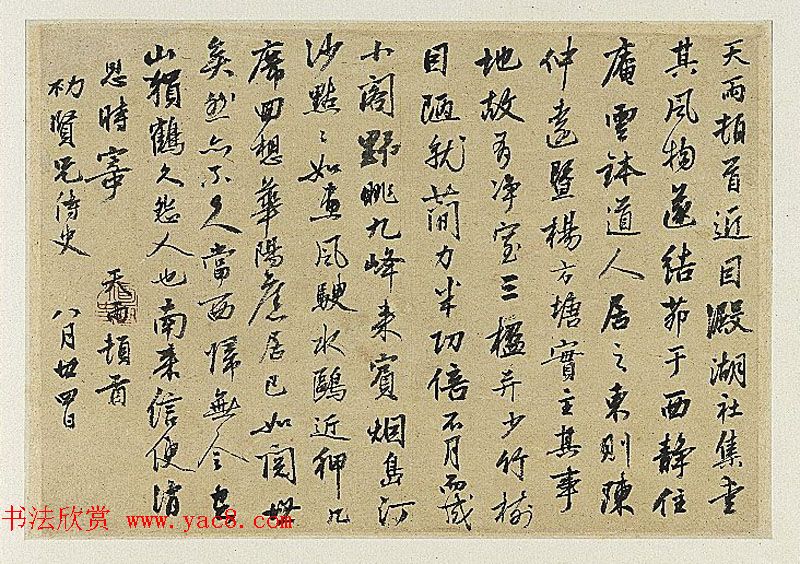 天雨頓首近因澱湖社集愛
其風物遂結茆于西靜住
庵雲鉢道人居之東則陳
仲遠暨楊方塘實主其事
地故有净室三楹并少竹樹
因陋就簡力半功倍不月而成
小閣野眺九峰来賓烟島汀
沙點〻如畫風駛水鷗近狎几
席回想華陽舊居已如閱世
矣然亦不久當西歸無令空
山猨鶴久怨人也南来信便
恩時寄
天雨頓首
初賢兄侍史 八月廿四日
书法欣赏 www.yac8.com